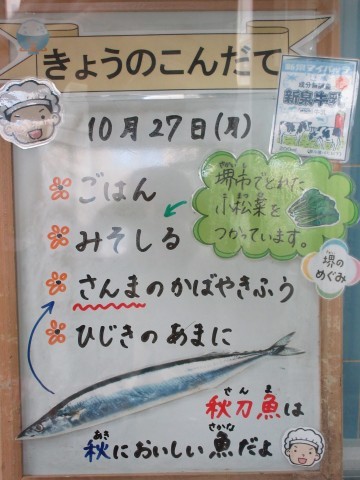 きょうのこんだて
10月27日(月)
ごはん
みそしる
さんまのかばやきふう
ひじきのあまに
堺市でとれた
小松菜を
つかっています。
堺の
めぐみ
新泉牛乳
さんま
秋刀魚は
あき さかな
秋においしい魚だよ